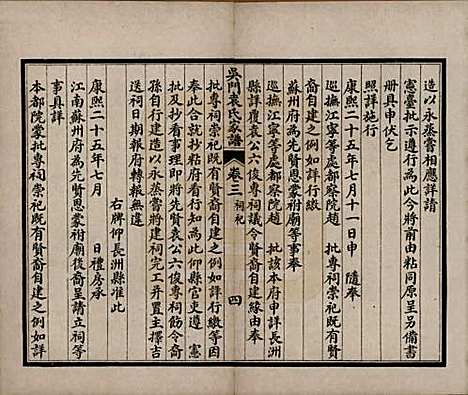 造以永蒸嘗相應詳請
憲臺批示遵行爲此今將前由粘同原呈另備書
册具申伏乞
照詳施行
康熙二十五年七月十一日申　隨奉
巡撫江寧等處都察院趙　批專祠崇祀既有賢
裔自建之例如詳行繳又奉
蘇州府爲先賢恩蒙祔廟等事奉
巡撫江寧等處都察院趙　批該本府申詳長洲
縣詳覆袁公六俊專祠議令賢裔自建緣由奉
吳門袁氏家譜　卷三　祠祀　四
批專祠崇祀既有賢裔自建之例如詳行繳等因
奉此合就抄看行知爲此仰縣官吏遵　憲
批及抄看事理即將先賢袁公六俊專祠飭令裔
孫自行建造以永蒸嘗將建祠完工幷置主擇吉
送祠日期報府轉報無違
右牌仰長洲縣准此
康熙二十五年七月　　日禮房承
江南蘇州府爲先賢恩蒙祔廟後裔呈請立祠等
事具詳
本部院蒙批專祠崇祀既有賢裔自建之例如詳